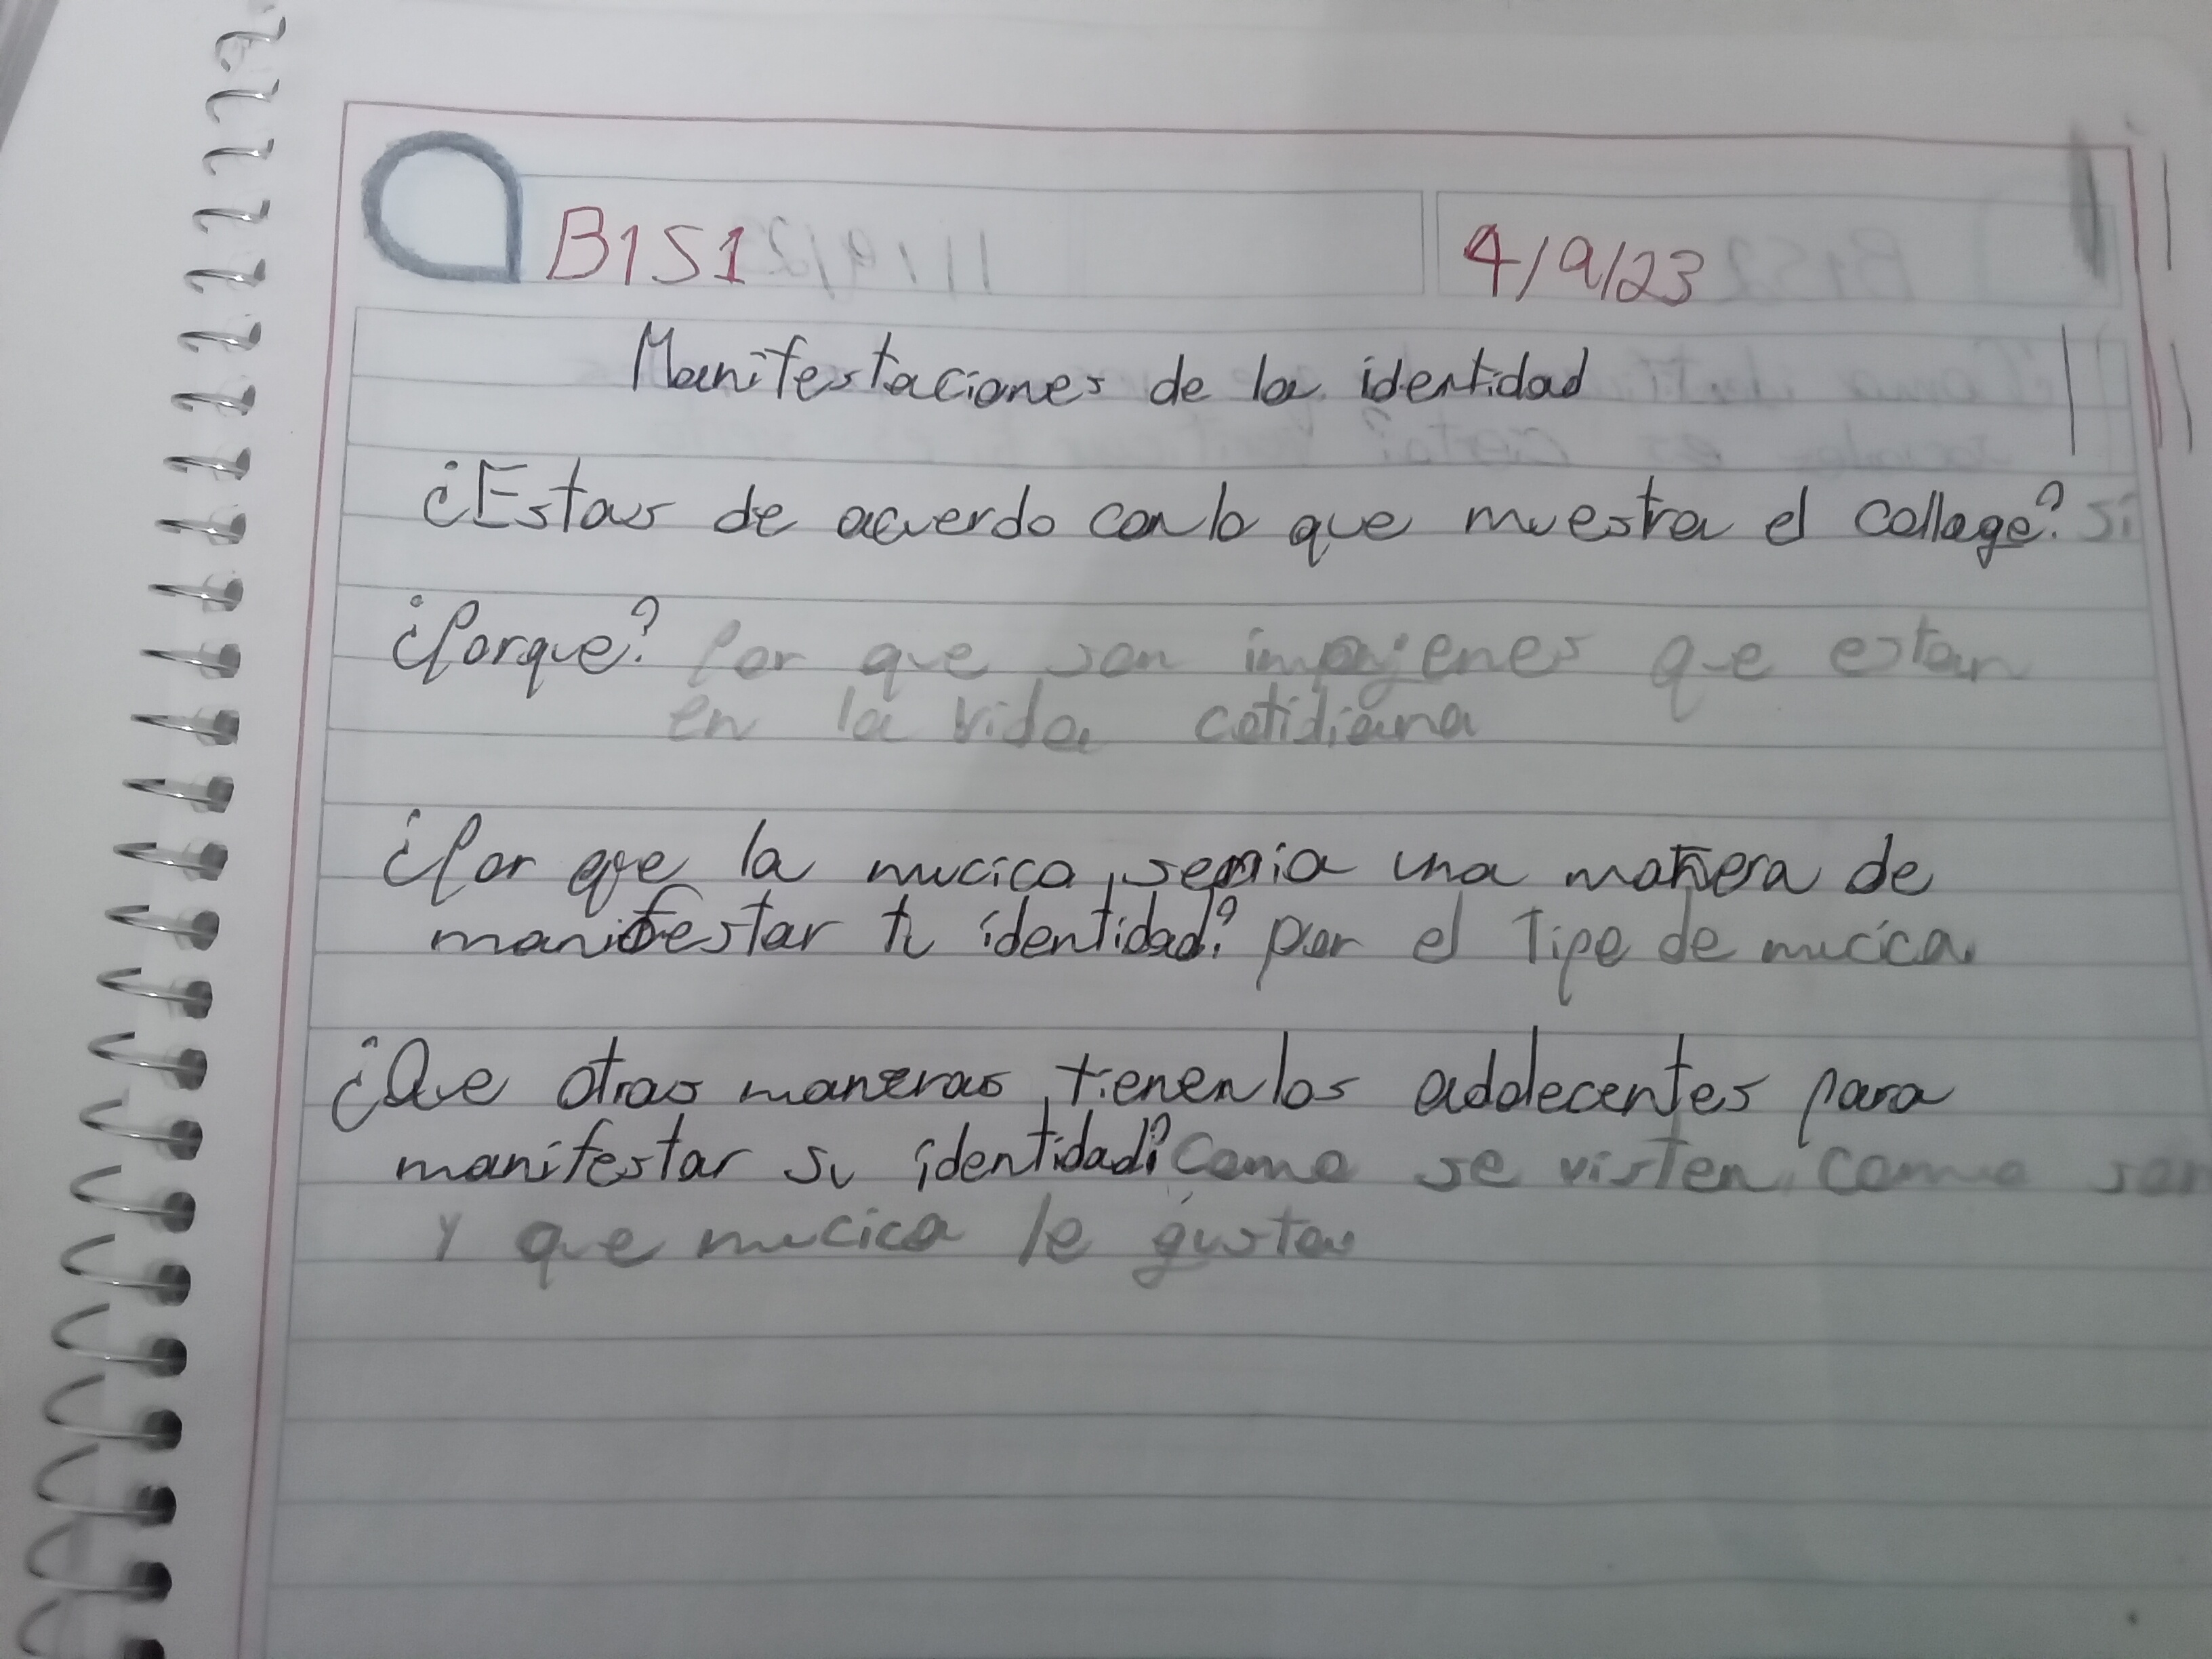 B1S1 4/9/23
Manifestaciones de la identidad
¿Estas de acuerdo con lo que muestra el collage? Si
¿Porque? Por que son imagenes que estan
en la vida cotidiana
¿Por que la mucica, seria una manera de
manifestar tu identidad? por el Tipo de mucica
¿Que otras maneras tienen los adolecentes para
manifestar su identidad? Como se visten, como son
y que mucica le gusta